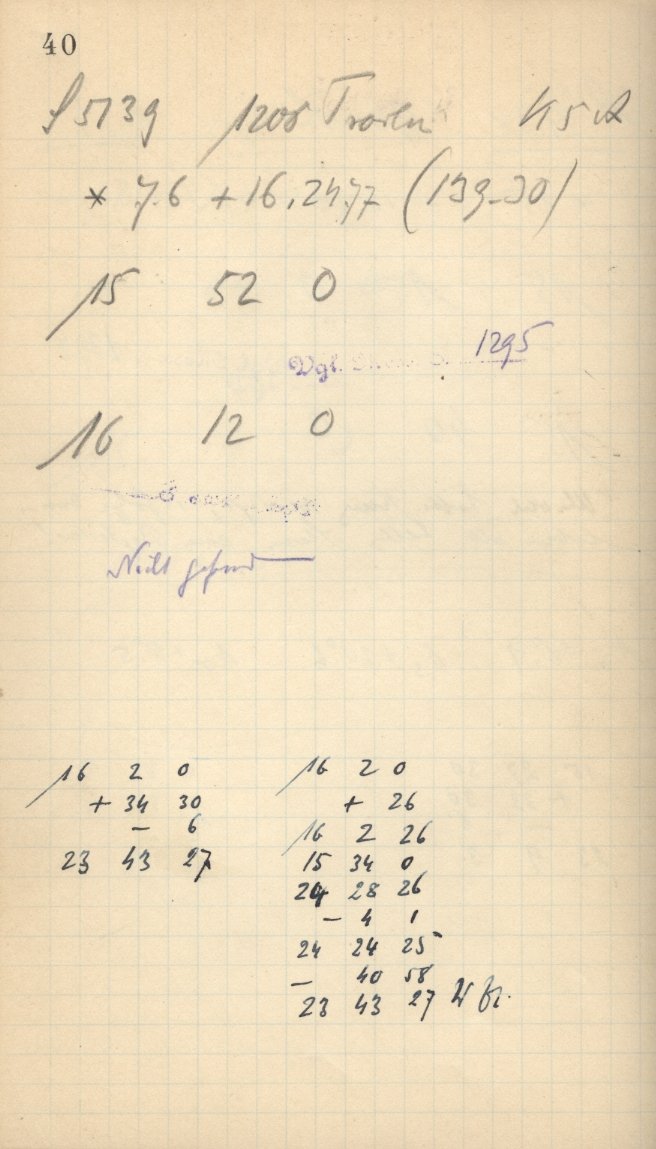 40
S 5139 1208
* 7.6 +16, 24.77 (139-30)
15 52 0
Vgl. 1295
16 12 0
Nicht
16 2 0
+ 34 30
- 6
23 43 27
16 2 0
+ 26
16 2 26
15 34 0
24 28 26
- 4 1
24 24 25
- 40 58
23 43 27